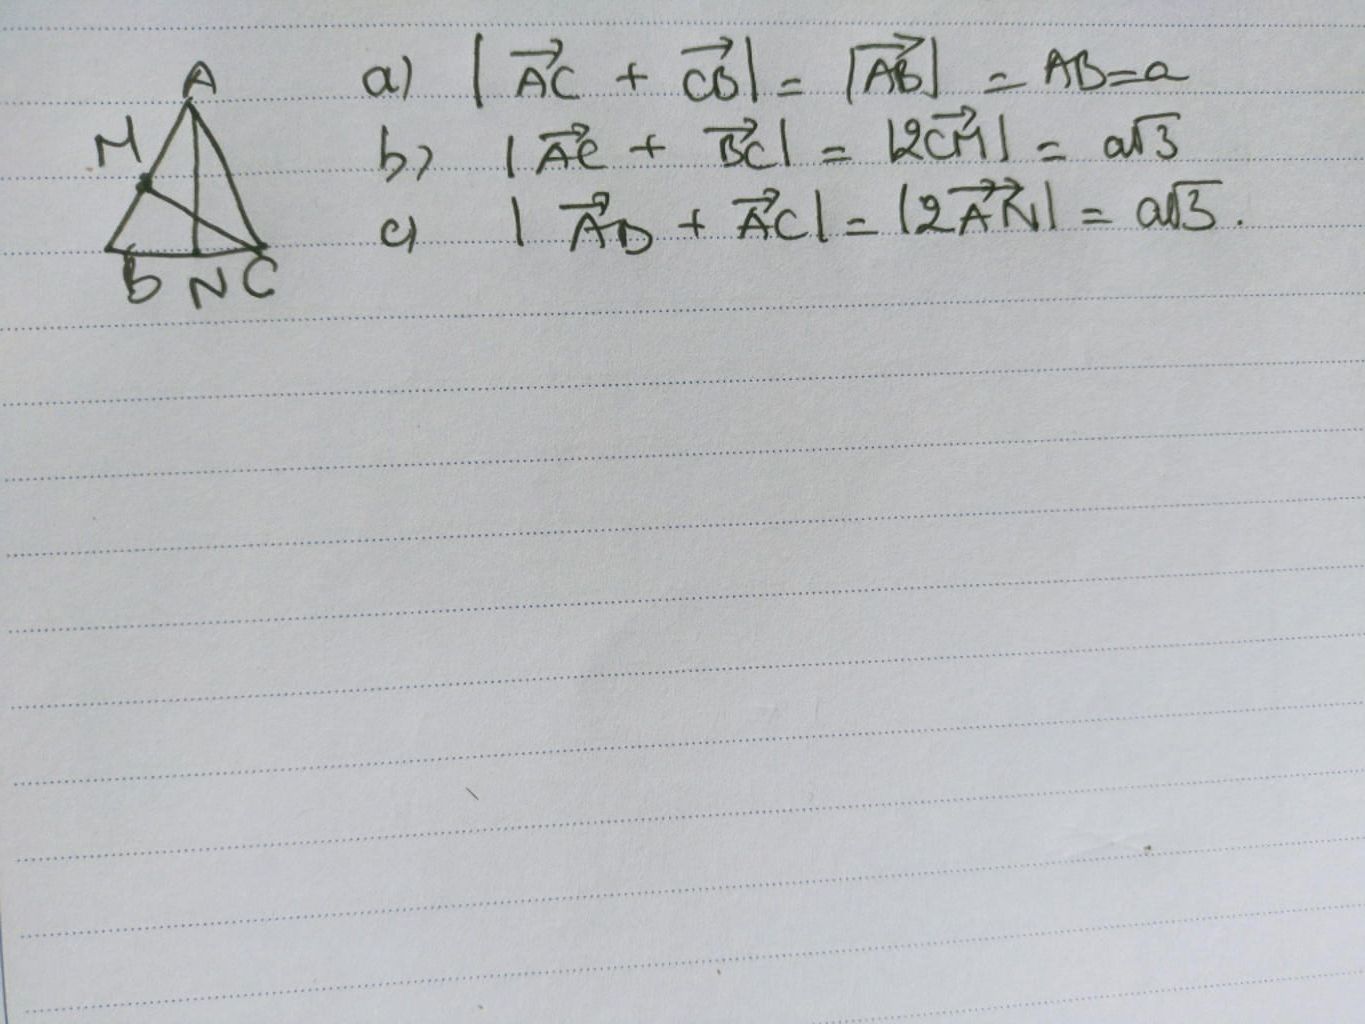 A
M
B N C
a) |\vec{AC} + \vec{CB}| = |\vec{AB}| = AB = a
b) |\vec{AC} + \vec{BC}| = |2\vec{CM}| = a√3
c) |\vec{AB} + \vec{AC}| = |2\vec{AN}| = a√3.